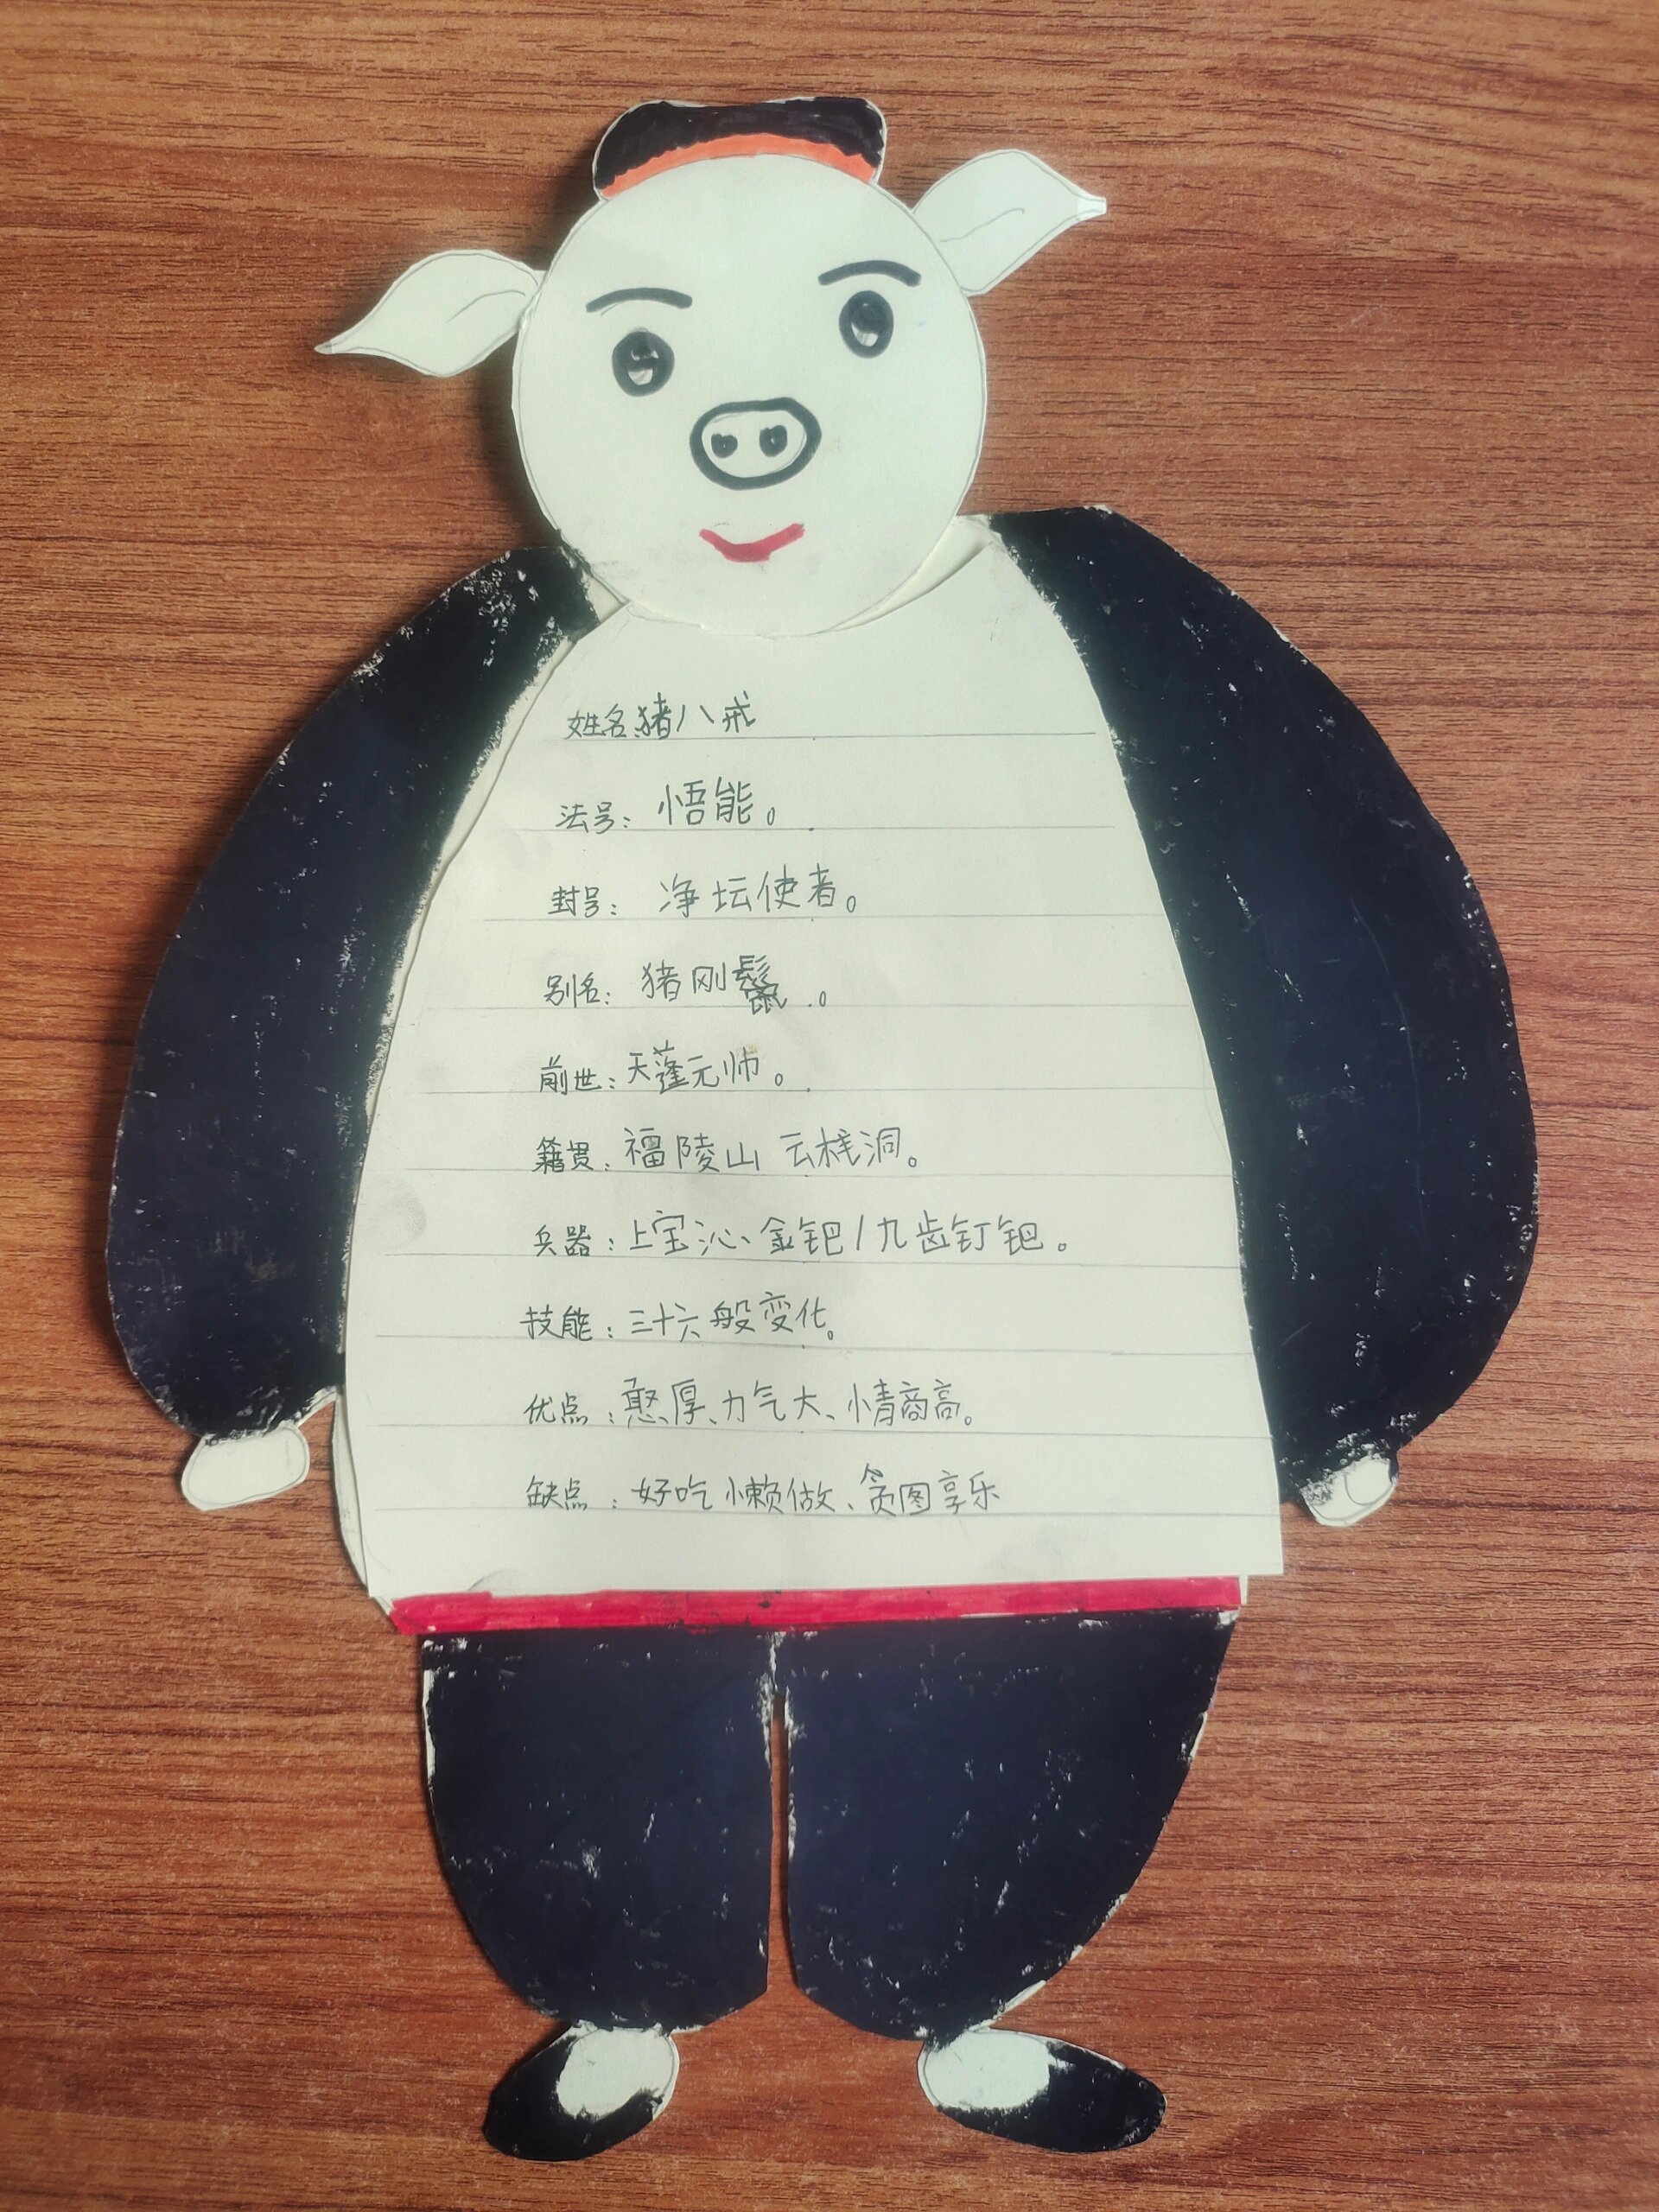 姓名猪八戒
法号：悟能。
封号：净坛使者。
别名：猪刚鬣。
前世：天蓬元帅。
籍贯：福陵山 云栈洞。
兵器：上宝沁金钯/九齿钉钯。
技能：三十六般变化。
优点：憨厚、力气大、情商高。
缺点：好吃懒做、贪图享乐